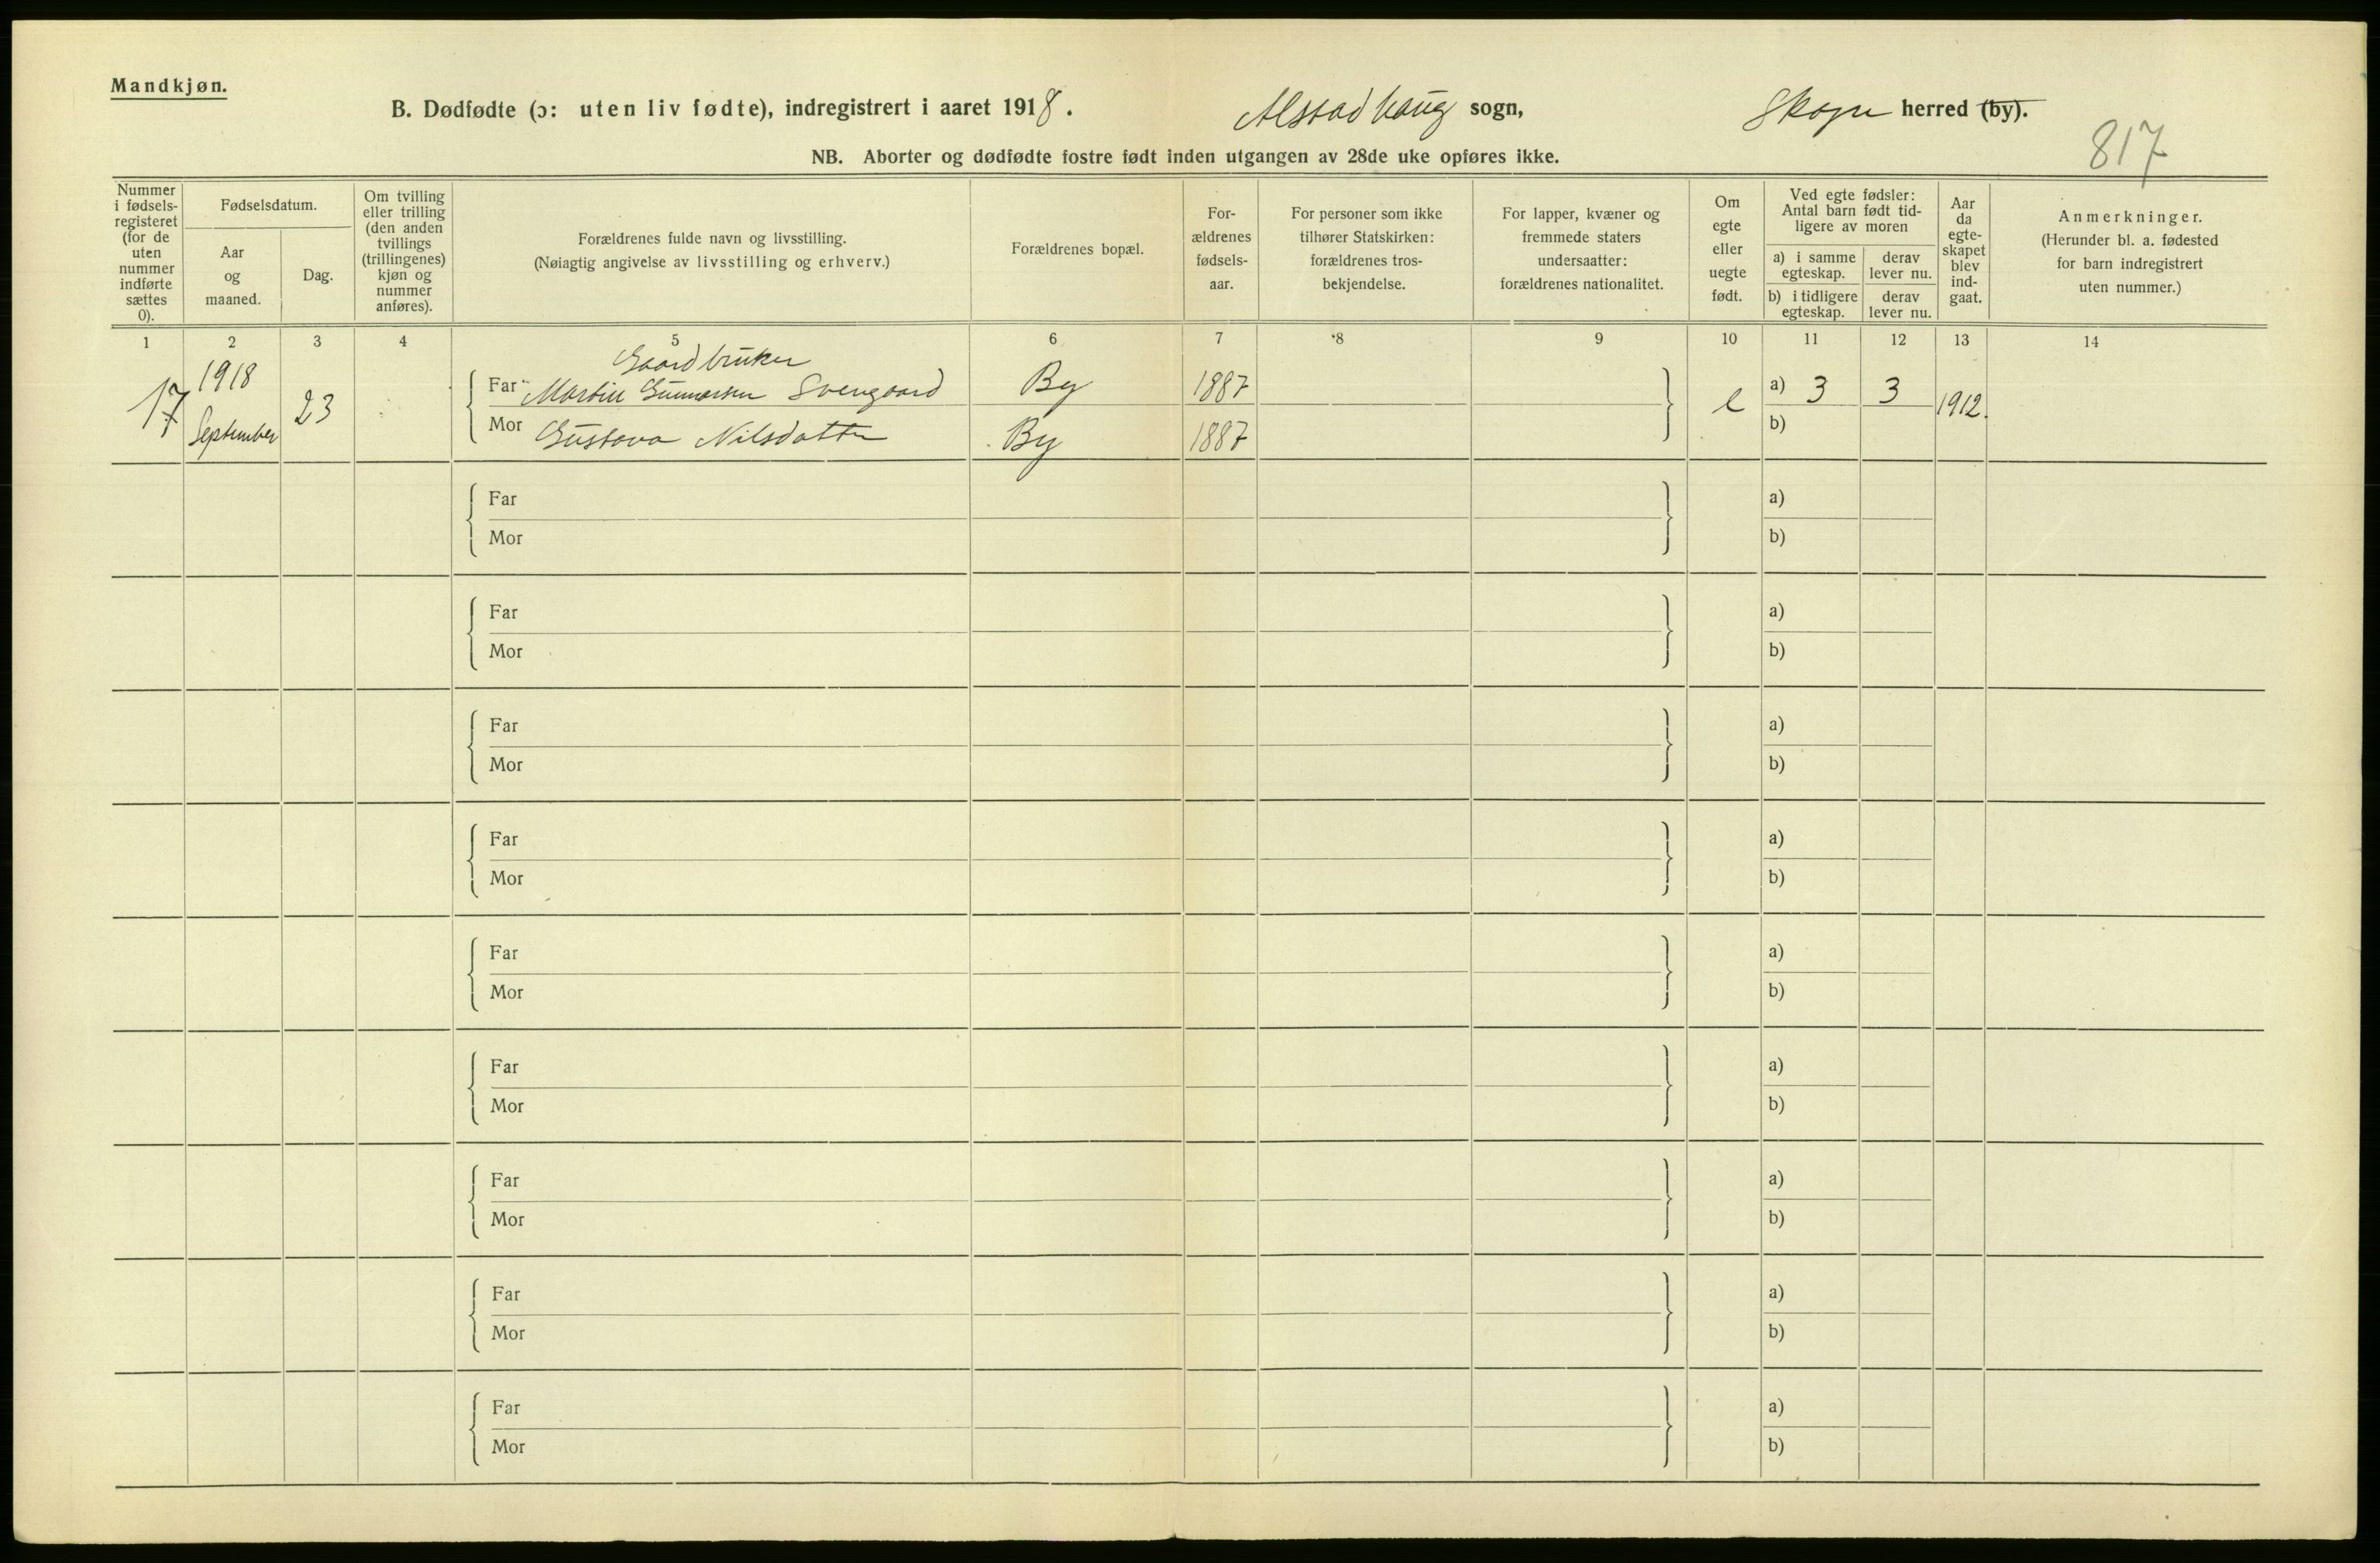 Mandkjøn.
B. Dødfødte (ɔ: uten liv fødte), indregistrert i aaret 1918. Alstadhaug sogn, Skogn herred (by).
817
NB. Aborter og dødfødte fostre født inden utgangen av 28de uke opføres ikke.
Nummer i fødsels-registeret (for de uten nummer indførte sættes 0).
Fødselsdatum.
Aar og maaned.
Dag.
Om tvilling eller trilling (den anden tvillings (trillingenes) kjøn og nummer anføres).
Forældrenes fulde navn og livsstilling.
(Nøiagtig angivelse av livsstilling og erhverv.)
Forældrenes bopæl.
For-ældrenes fødsels-aar.
For personer som ikke tilhører Statskirken: forældrenes tros-bekjendelse.
For lapper, kvæner og fremmede staters undersaatter: forældrenes nationalitet.
Om egte eller uegte født.
Ved egte fødsler: Antal barn født tid-ligere av moren
a) i samme egteskap.
derav lever nu.
b) i tidligere egteskap.
derav lever nu.
Aar da egte-skapet blev ind-gaat.
Anmerkninger.
(Herunder bl. a. fødested for barn indregistrert uten nummer.)
1 2 3 4 5 6 7 8 9 10 11 12 13 14
Gaardbruker
17 1918 September 23
Far Martin Gunnarsen Svengaard By 1887
e a) 3 3 1912.
Mor Gustava Nilsdatter By 1887
b)
Far a)
Mor b)
Far a)
Mor b)
Far a)
Mor b)
Far a)
Mor b)
Far a)
Mor b)
Far a)
Mor b)
Far a)
Mor b)
Far a)
Mor b)
Far a)
Mor b)